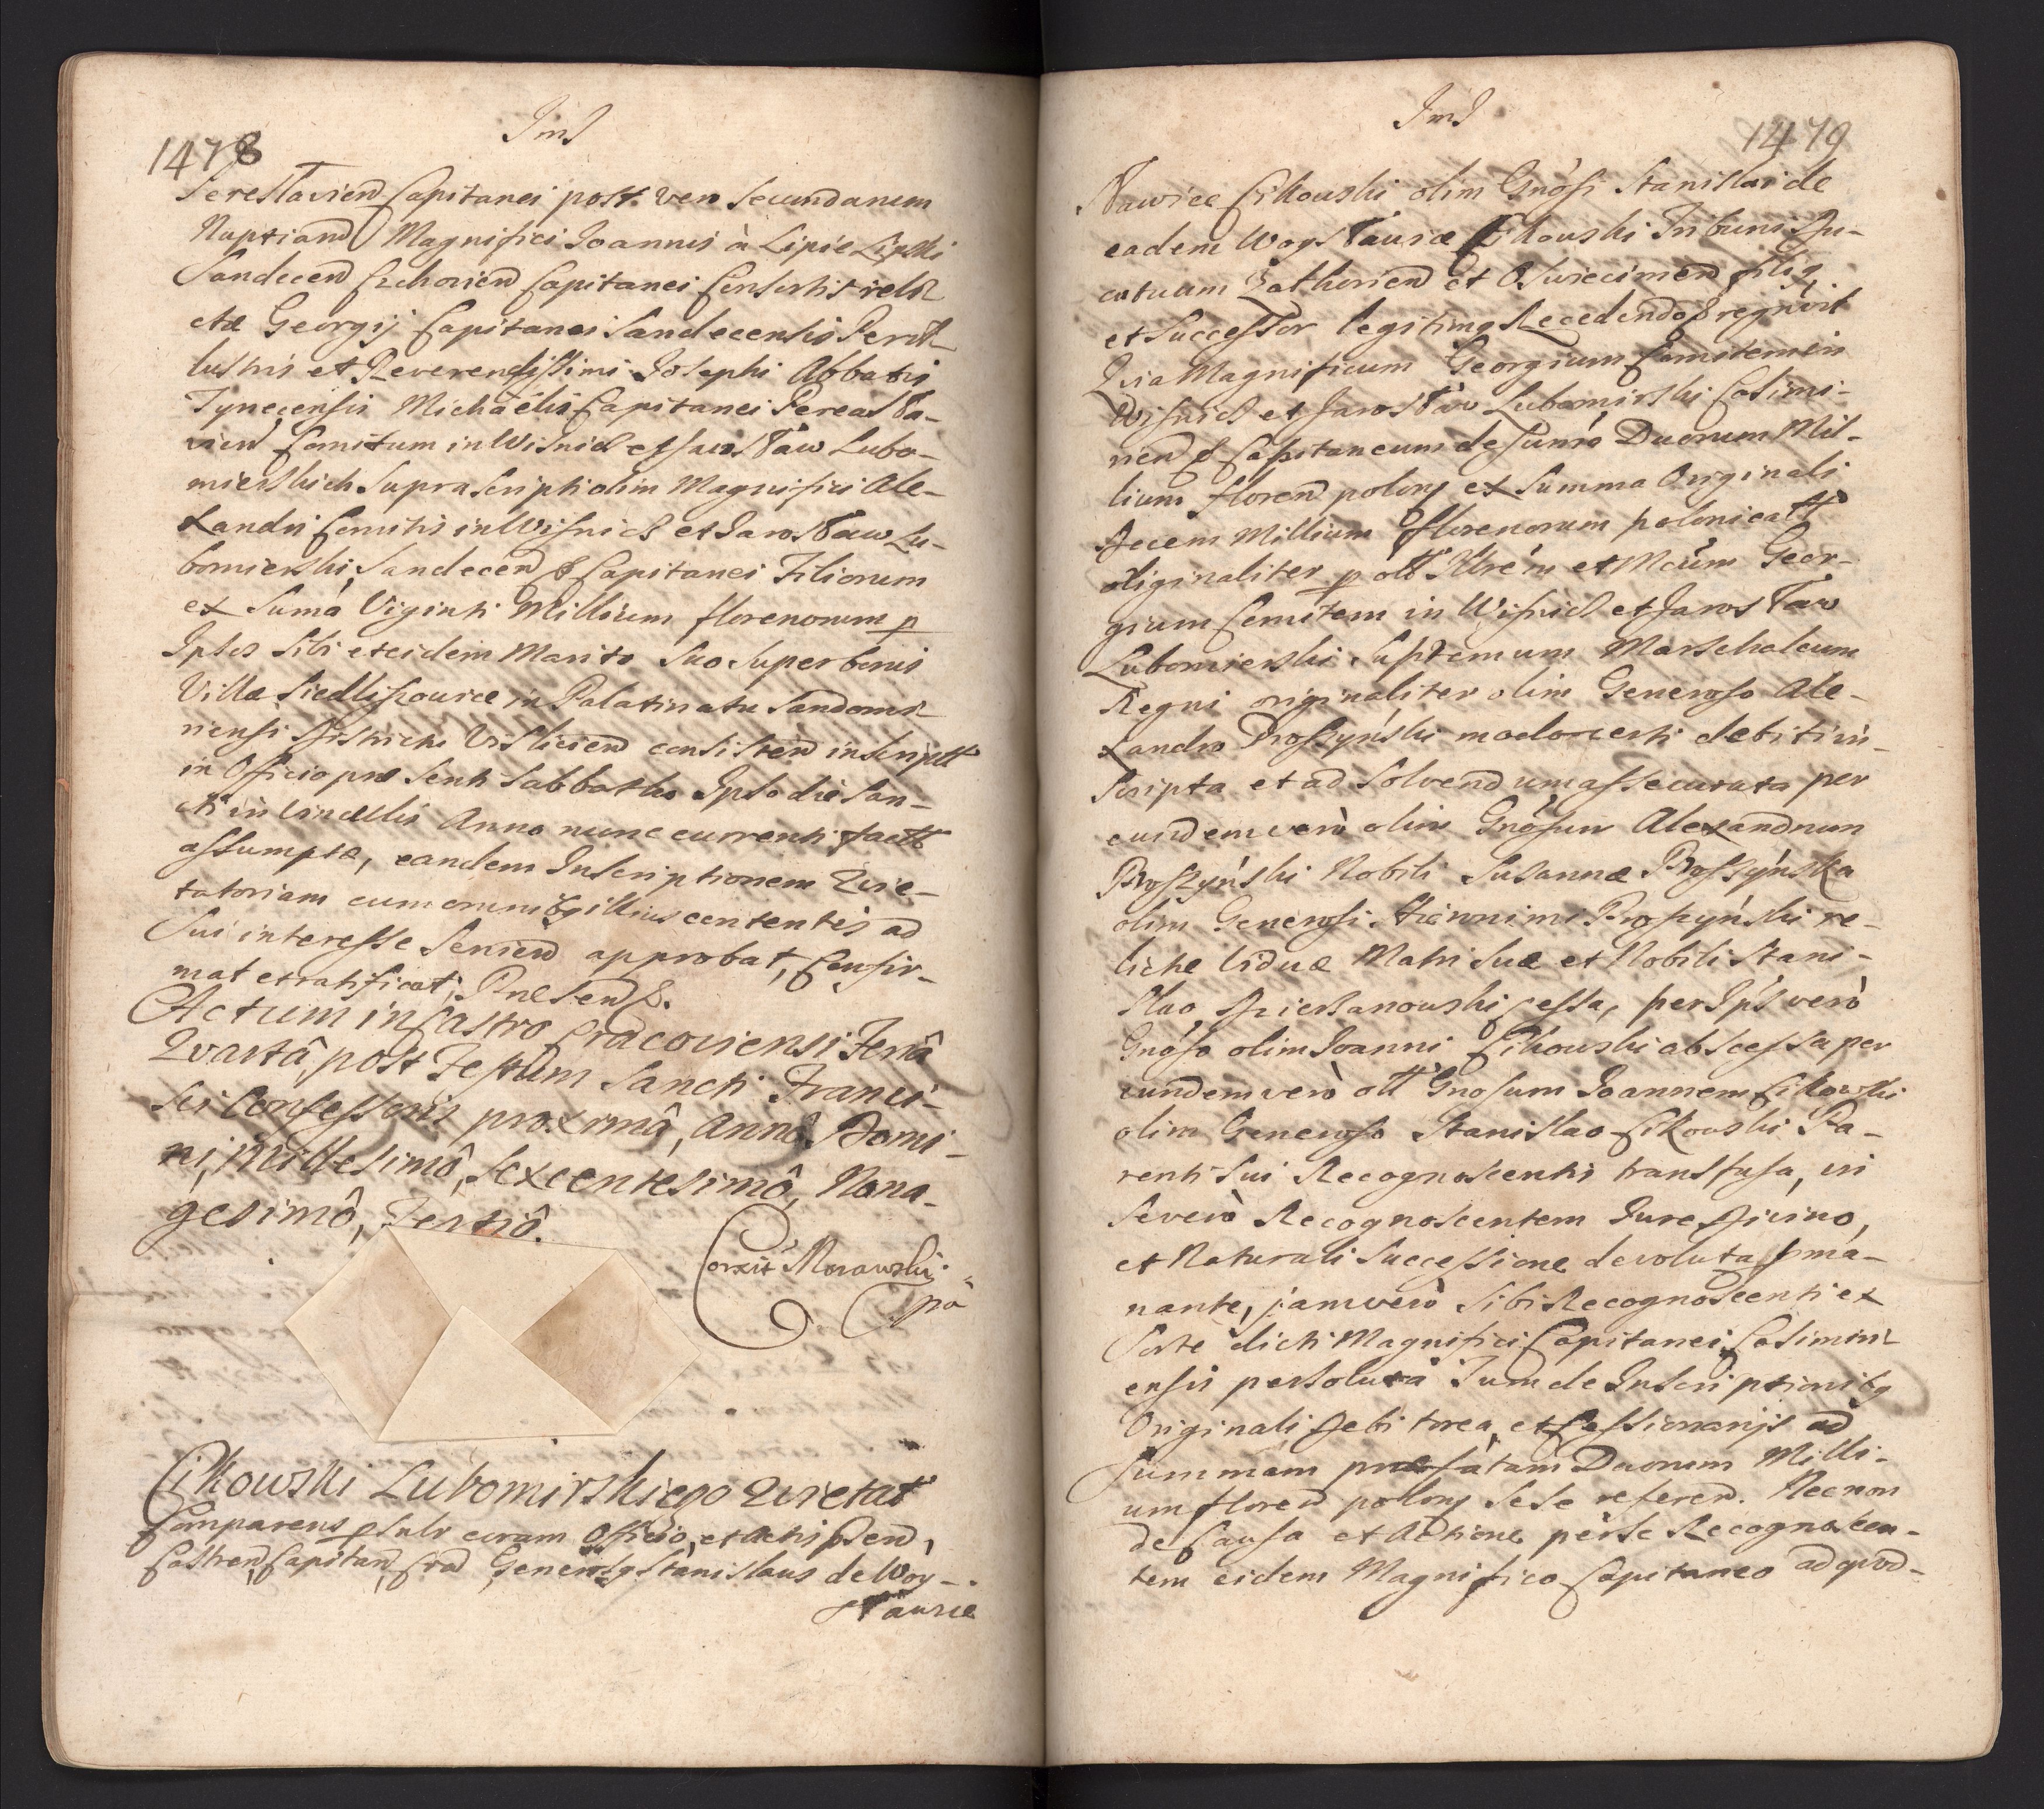 JmJ
1478
Perestaviend Capitanei post. vero Secundarum
Nuptiand Magnifici Joannis à Lipie Lipski
Sandecen Czchoviend Capitanei Consortis relic-
ctæ Georgij Capitanei Sandecensis Peril-
lustris et Reverendissimi Josephi Abbatis
Tynecensis Michaelis Capitanei Pereasła-
viend Comitum in Wisnicz et Jarosław Lubo-
mierskich Suprascripti olim Magnifici Ale-
xandri Comitis in Wisnicz et Jarosław Lu-
bomierski, Sandecen & Capitanei Filiorum
ex Suma Viginti Millium florenorum p
Ipsos Sibi et eidem Marito Suo Super bonis
Villæ Siedliszowice in Palatinatu Sandomi-
riensi Districtu Visliciend consistend inscriptt
in Officio præsenti Sabbatho Ipso die San-
cti in Vinculis Anno nunc currenti factt
assumptæ, eandem Inscriptionem Quie-
tatoriam cum omnibg illius contentis ad
Sui interesse Seriend approbat, Confir-
mat et ratificat, Præsend &.
Actum in Castro Cracoviensi Feriâ
Quartâ, post Festum Sancti Franci-
sci Confessoris proximâ, Annô Domi-
ni, Millesimô, Sexcentesimô, Nona-
gesimô, Tertiô.
Correxit Morawski
Cikowski Lubomirskiego Quietat
Comparens psalr coram Officio, et Actis psend,
Castrend, Capitand, Crad Generosg Stanislaus de Woy-
sławice
JmJ
1479
sławice Cikowski olim Gnosi Stanislai de
eadem Woysławice Cikowski Tribuni Du-
catuum Zathoriend et Osviecimend filig
et Successor legitimg Recedendo & regnovit
Quia Magnificum Georgium Comitem in
Wisnicz et Jarosław Lubomirski Casimi-
riend & Capitaneum de Suma Duorum Mil-
lium florend polong ex Summa Originali
Decem Millium florenorum polonicatt
originaliter p olt Illrem et Mcum Geor-
gium Comitem in Wisnicz et Jarosław
Lubomierski Supremum Marschalcum
Regni originaliter olim Generoso Ale-
xandro Proszyński modo certi debiti in-
scripta et ad Solvendum assecurata per
eundem verò olim Gnosum Alexandrum
Proszyński Nobili Susannæ Proszyńska
olim Generosi Hieronimi Proszyński re-
lictæ Viduæ Matri Suæ et Nobili Stani-
slao Dziersanowski cessa, per Ips verò
Gnoso olim Joanni Cikowski abscessa per
eundem verò olt Gnosum Joannem Cikowski
olim Generoso Stanislao Cikowski Pa-
renti Sui Recognoscentis transfusa, in
Se verò Recognoscentem Jure Divino,
et Naturali Successione devoluta, & ma-
nante, jam verò Sibi Recognoscenti ex
Sorte dicti Magnifici Capitanei Casimiri-
ensis persoluta Tum de Inscriptionibg
Originali Debitorea, et Cessionarijs ad
Summam præfatam Duorum Milli-
um florend polong Sese referend. Necnon
de Causa et Actione per se Recognoscen-
tem eidem Magnifico Capitaneo ad quod-